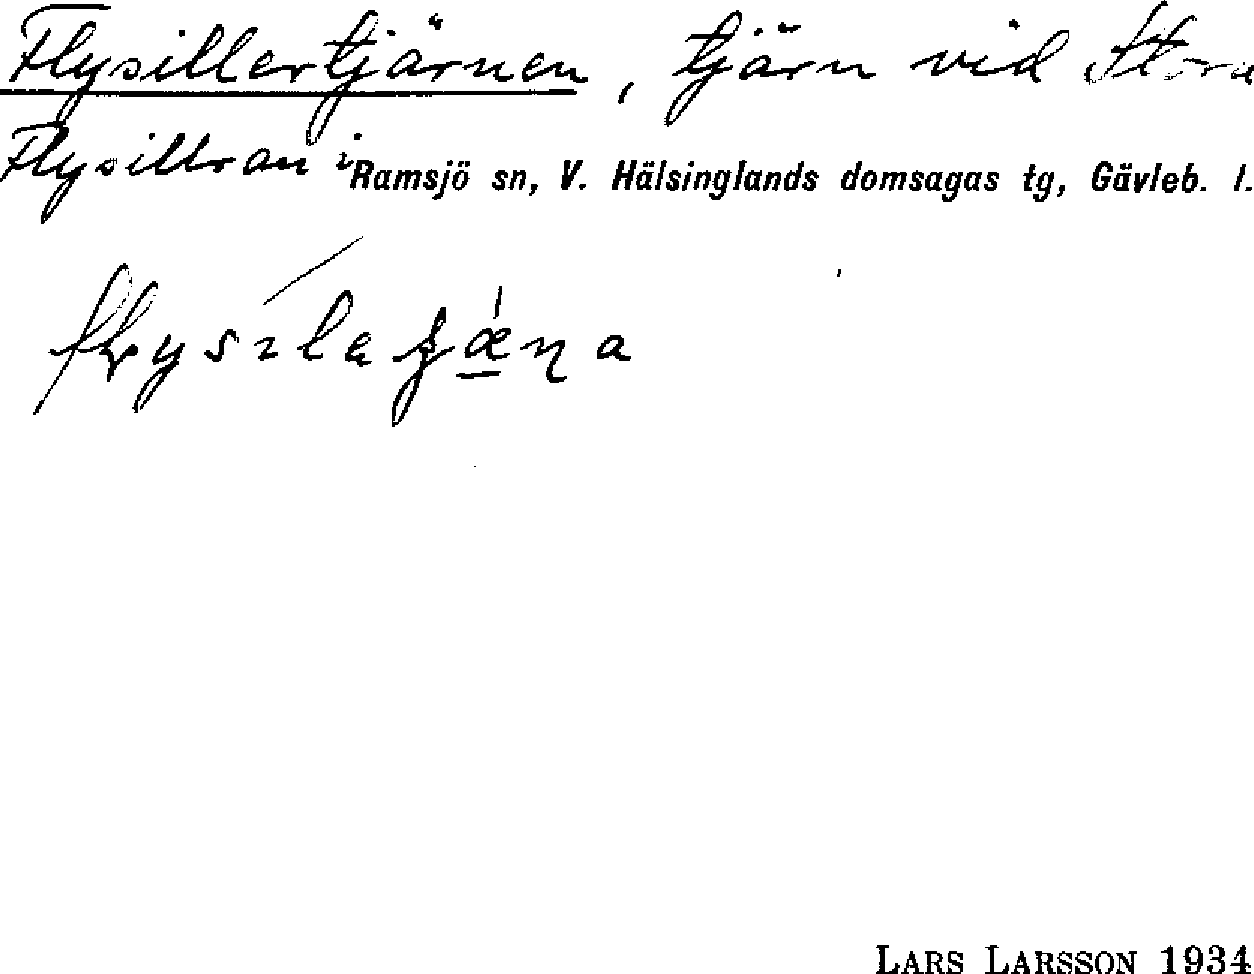 Flysillertjärnen, tjärn vid Stora
Flysillran i Ramsjö sn, V. Hälsinglands domsagas tg, Gävleb. l.
LARS LARSSON 1934